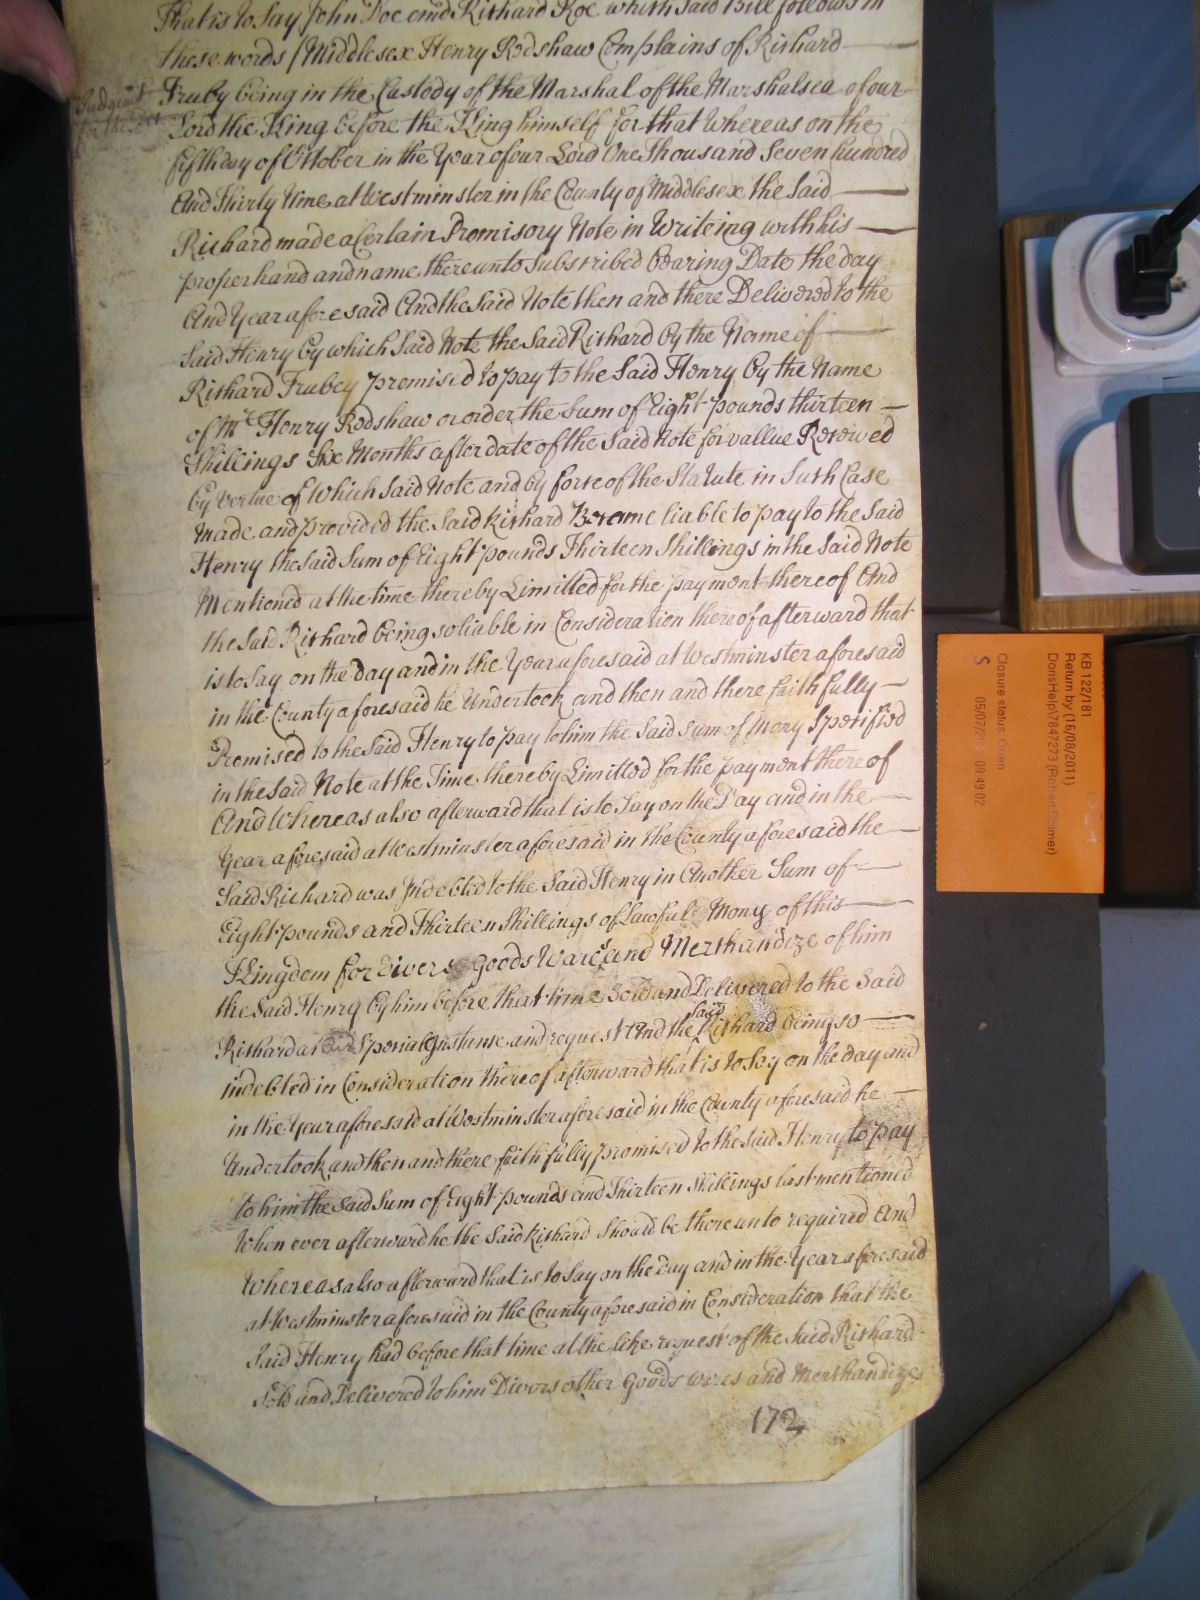 That is to Say John Doe and Richard Roe which said Bill follows in
these words / Middlesex Henry Redshaw Complains of Richard
Fruby being in the Custody of the Marshal of the Marshalsea of our
Judgmt
for the
Lord the King before the King himself for that Whereas on the
fifth day of October in the Year of our Lord One Thousand Seven hundred
And Thirty Nine at Westminster in the County of Middlesex the Said
Richard made a Certain Promisory Note in Writeing with his
proper hand and name thereunto Subscribed Bearing Date the day
And Year aforesaid And the Said Note then and there Delivered to the
Said Henry by which Said Note the Said Richard by the Name of
Richard Frubey promised to pay to the Said Henry by the Name
of Mr Henry Redshaw or order the Sum of Eight pounds thirteen
Shillings Six Months after date of the Said Note for vallue Received
by vertue of Which Said Note and by force of the Statute in Such Case
made and provided the Said Richard Became liable to pay to the Said
Henry the Said Sum of Eight pounds Thirteen Shillings in the Said Note
Mentioned at the time thereby Limitted for the payment thereof And
the Said Richard being so liable in Consideration thereof afterward that
is to Say on the day and in the Year aforesaid at Westminster aforesaid
in the County aforesaid he Undertook and then and there faithfully
Promised to the Said Henry to pay to him the Said Sum of Mony Specified
in the Said Note at the Time thereby Limitted for the payment thereof
And Whereas also afterward that is to Say on the Day and in the
Year aforesaid at Westminster aforesaid in the County aforesaid the
Said Richard was Indebted to the Said Henry in Another Sum of
Eight pounds and Thirteen Shillings of Lawfull Mony of this
Kingdom for Divers Goods Wares and Merchandize of him
the Said Henry by him before that time Sold and Delivered to the Said
Richard at his Special Instance and request And the said Richard being so
indebted in Consideration thereof afterward that is to Say on the day and
in the Year aforesaid at Westminster aforesaid in the County aforesaid he
Undertook and then and there faithfully promised to the Said Henry to pay
to him the Said Sum of Eight pounds and Thirteen Shillings last mentioned
When ever afterward he the Said Richard Should be thereunto required And
Whereas also afterward that is to Say on the Day and in the Year aforesaid
at Westminster aforesaid in the County aforesaid in Consideration that the
Said Henry had before that time at the like request of the Said Richard
Sold and Delivered to him Divers other Goods wares and Merchandize
172
KB 122/181
Return by (16/08/2011)
DorisHelp\7847273 (Robert Palmer)
Closure status: Open
S 05/07/20 09:49:02